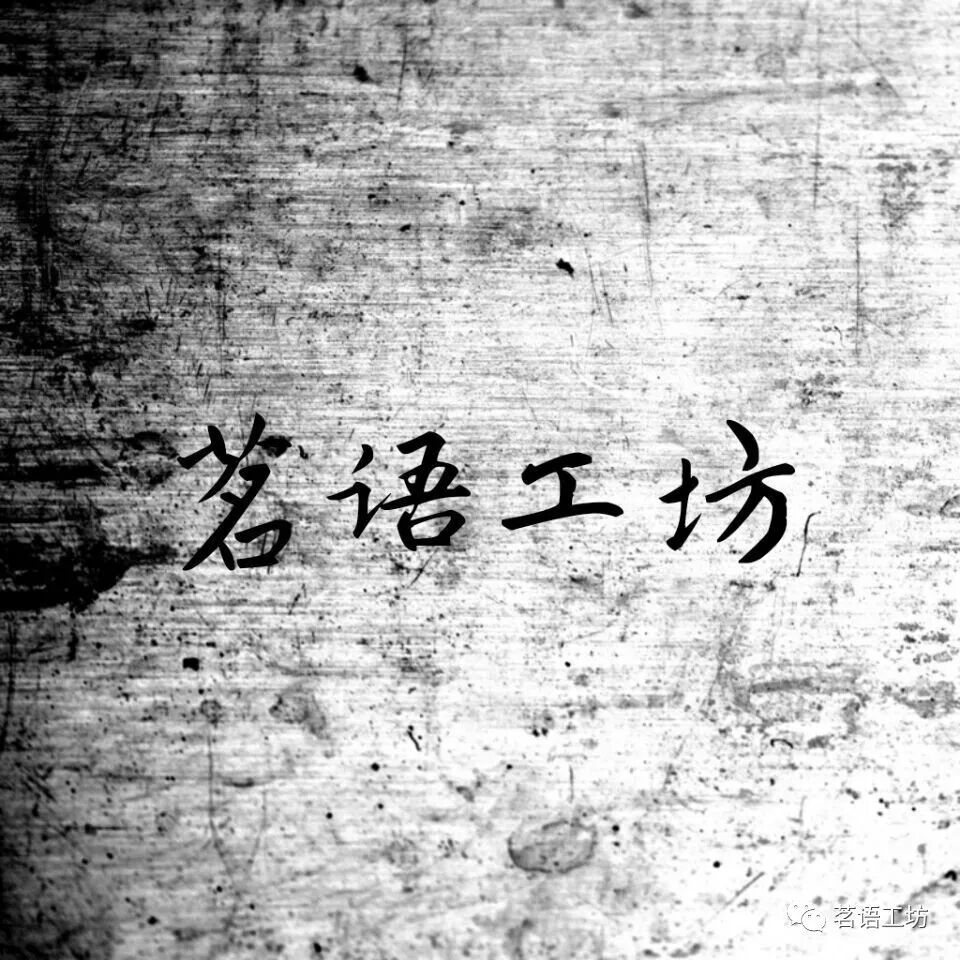 茗语工坊
茗语工坊